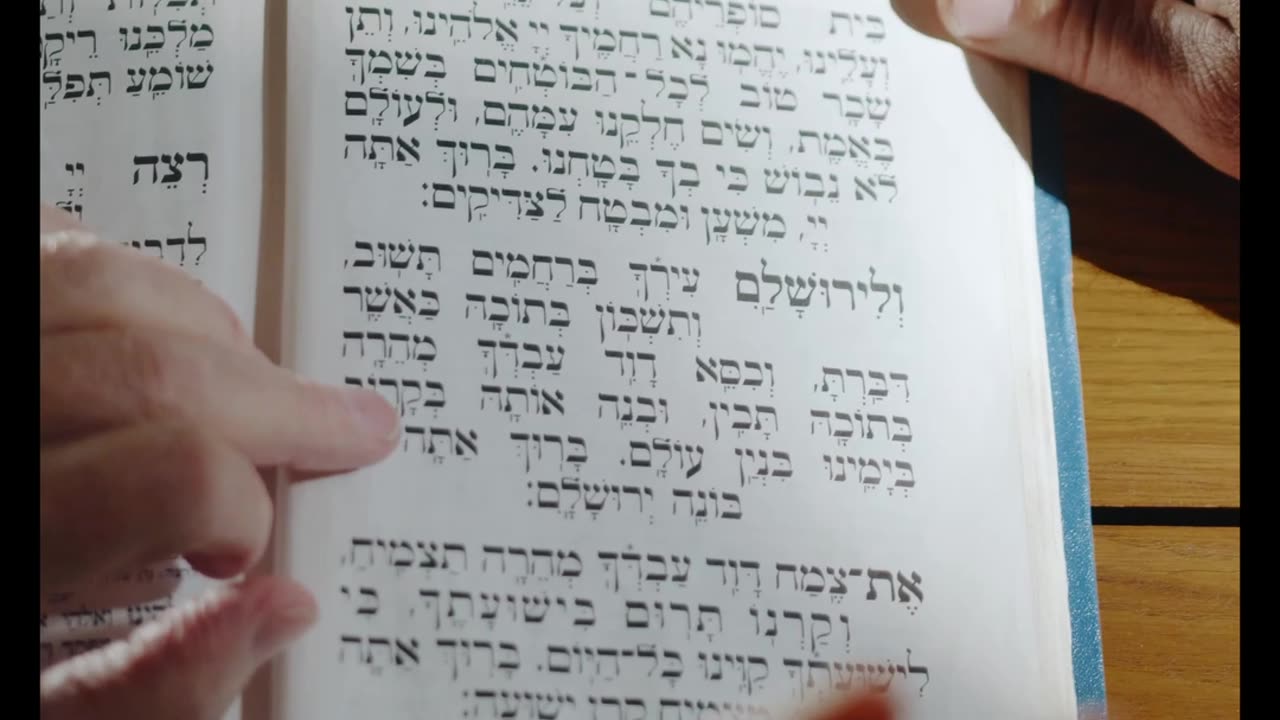 בֵּית סוֹפְרֵיהֶם
וְעָלֵינוּ, יֶהֱמוּ נָא רַחֲמֶיךָ יְיָ אֱלֹהֵינוּ, וְתֵן
שָׂכָר טוֹב לְכָל־הַבּוֹטְחִים בְּשִׁמְךָ
בֶּאֱמֶת, וְשִׂים חֶלְקֵנוּ עִמָּהֶם, וּלְעוֹלָם
לֹא נֵבוֹשׁ כִּי בְךָ בָּטָחְנוּ. בָּרוּךְ אַתָּה
יְיָ, מִשְׁעָן וּמִבְטָח לַצַּדִּיקִים:
וְלִירוּשָׁלַיִם עִירְךָ בְּרַחֲמִים תָּשׁוּב,
וְתִשְׁכּוֹן בְּתוֹכָהּ כַּאֲשֶׁר
דִּבַּרְתָּ, וְכִסֵּא דָוִד עַבְדְּךָ מְהֵרָה
בְּתוֹכָהּ תָּכִין, וּבְנֵה אוֹתָהּ בְּקָרוֹב
בְּיָמֵינוּ בִּנְיַן עוֹלָם. בָּרוּךְ אַתָּה
בּוֹנֵה יְרוּשָׁלָיִם:
אֶת־צֶמַח דָּוִד עַבְדְּךָ מְהֵרָה תַצְמִיחַ,
וְקַרְנוֹ תָּרוּם בִּישׁוּעָתֶךָ, כִּי
לִישׁוּעָתְךָ קִוִּינוּ כָּל־הַיּוֹם. בָּרוּךְ אַתָּה
מַצְמִיחַ קֶרֶן יְשׁוּעָה:
מַלְכֵּנוּ רֵיקָם
שׁוֹמֵעַ תְּפִלָּ
רְצֵה יְיָ